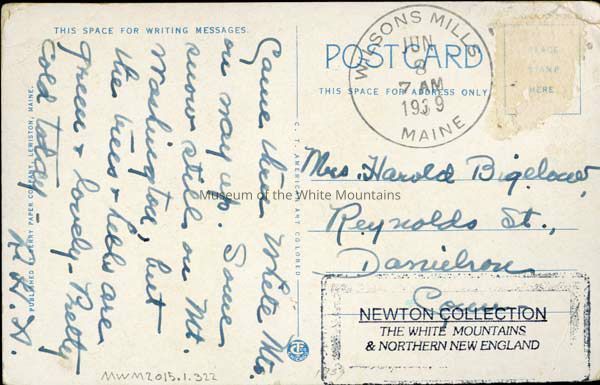 THIS SPACE FOR WRITING MESSAGES.
Came thru White Mts.
on way up. Some
snow still on Mt.
Washington, but
the trees & hills are
green & lovely - Pretty
cold today -
PUBLISHED BY BERRY PAPER COMPANY, LEWISTON, MAINE.
C. T. AMERICAN ART COLORED
POSTCARD
THIS SPACE FOR ADDRESS ONLY
PLACE
STAMP
HERE
WILSONS MILLS
JUN
8
7 AM
1939
MAINE
Mrs. Harold Bigelow,
Reynolds St.,
Danielson
Conn.
Museum of the White Mountains
NEWTON COLLECTION
THE WHITE MOUNTAINS
& NORTHERN NEW ENGLAND
MWM2015.1.322